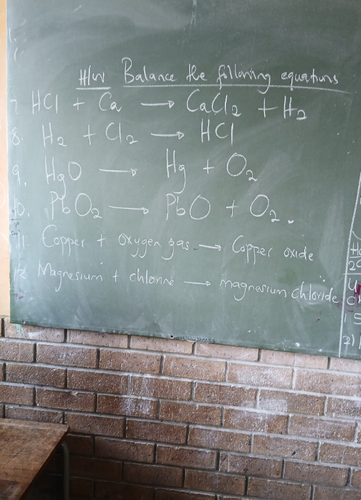 H/W Balance the following equations
7. HCl + Ca → CaCl₂ + H₂
8. H₂ + Cl₂ → HCl
9. HgO → Hg + O₂
10. PbO₂ → PbO + O₂.
11. Copper + oxygen gas → Copper oxide
12. Magnesium + chlorine → magnasium chloride